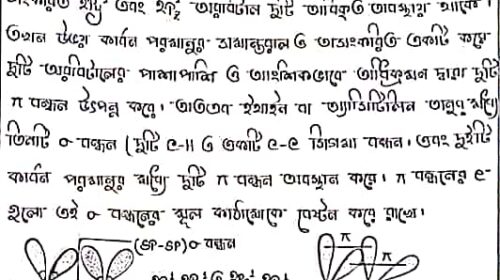 তখন উভয় কার্বন পরমাণুর ডাম্বুরাল ও তাডাংকরিত একটি করে
দুটি অরবিটালের পাশাপাশি ও আংশিকভাবে অধিক্রমন দ্বারা দুটি
π বন্ধন উৎপন্ন করে। অতএব ইথাইন বা অ্যাসিটিলিন অনুর মধ্যে
তিনটি σ বন্ধন (দুটি C-H ও একটি C-C সিগমা বন্ধন। এবং দুইটি
কার্বন পরমাণুর মধ্যে দুটি π বন্ধন অবস্থান করে। π বন্ধনের e-
হলো এই σ বন্ধনের মূল কাঠামোকে বেস্টন করে রাখে।
(SP-SP) σ বন্ধন
π π